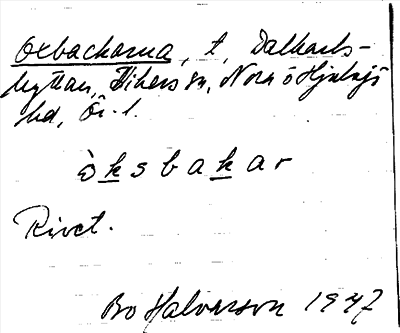 Oxbackarna, t, Dalkarls-
hyttan, Vikers sn, Nora o Hjulsjö
hd, Ör. l.
òksbakar
Rivet.
Bo Halvarson 1947